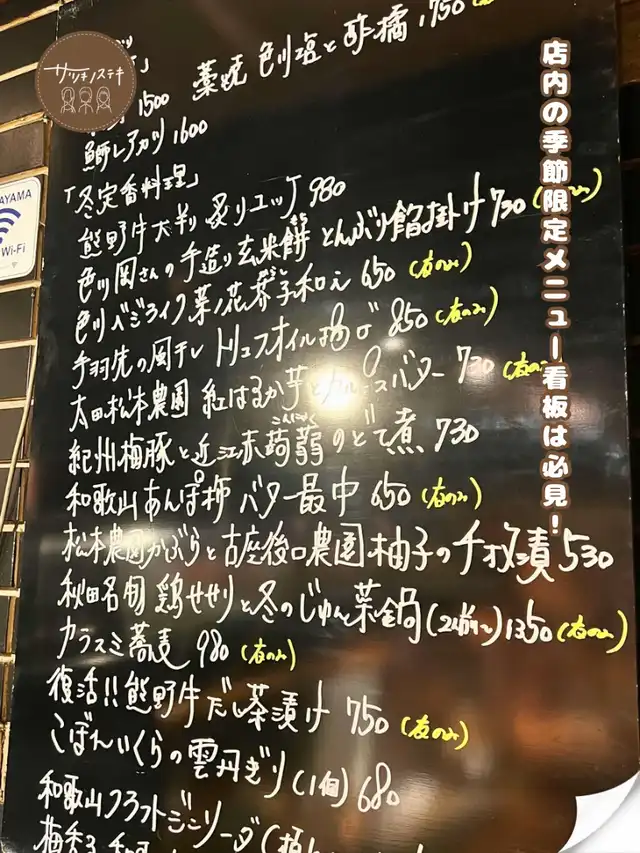 サツキノステキ
店内の季節限定メニュー看板は必見!
YAMA
Wi-Fi
藁焼 色川塩と酢橘 1,750
1500
鰤レアカツ 1600
「冬定番料理」
熊野牛大判 炙りユッケ 980
色川岡さんの手造り玄米餅 どんぶり餡掛け 730
もち
色川ベジライフ菜ノ花芥子和え 650 (夜のみ)
からし
手羽先の風干し トリュフオイル 850 (夜のみ)
太田松本農園 紅はるか芋と バター 730
こんにゃく
紀州梅豚と近江赤蒟蒻のどて煮 730
和歌山あんぽ柿 バター最中 650 (夜のみ)
松本農園かぶらと古座後口農園柚子の 漬 530
秋田名物 鶏せせりと冬のじゅん菜鍋 (2人前〜) 1350 (夜のみ)
カラスミ蕎麦 980 (夜のみ)
復活!!熊野牛だし茶漬け 750 (夜のみ)
こぼれいくらの雲丹ぎり (1個) 680
和歌山クラフトジンソーダ